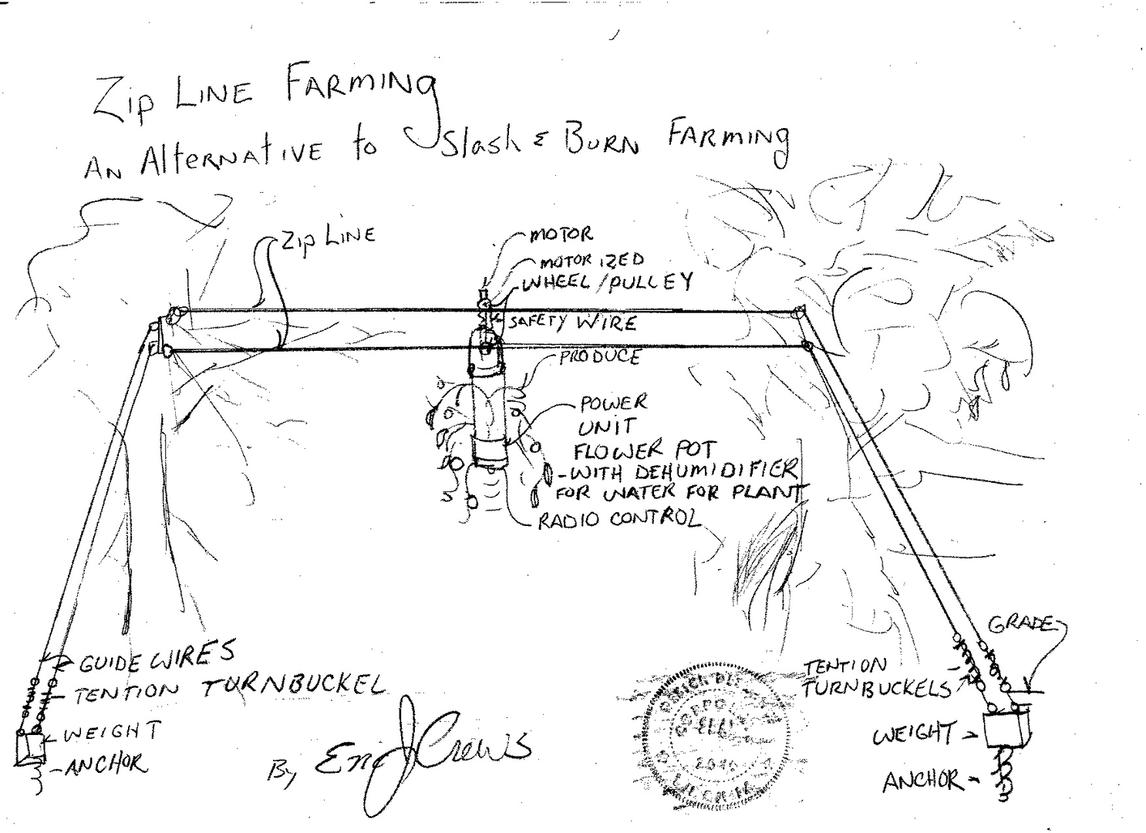 Zip LINE FARMING
AN AlTERNATIVE to Slash & BURN FARMING
Zip LINE
MOTOR
MOTORIZED
WHEEL/PULLEY
SAFETY WIRE
PRODUCE
POWER
UNIT
FLOWER POT
-WITH DEHUMIDIFIER
FOR WATER FOR PLANT
RADIO CONTROL
GUIDE WIRES
TENTION TURNBUCKEL
WEIGHT
ANCHOR
GRADE
TENTION
TURNBUCKELS
WEIGHT
ANCHOR
By Eric J Crews
2010